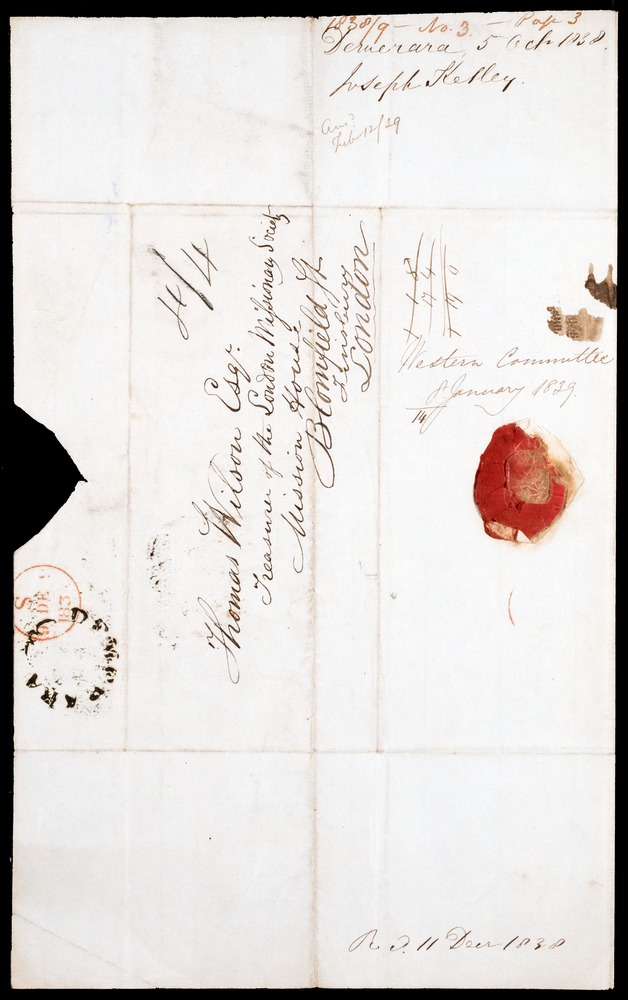 1838/9 - No. 3. -
Demerara, 5 Oct 1838.
Joseph Ketley.
Ansd
Feb 12/39
4/4
Thomas Wilson Esqr.
Treasurer of the London Missionary Society
Mission House
Blomfield St
Finsbury
London
Western Committee
8 January 1839
14
Rd 11 Decr 1838